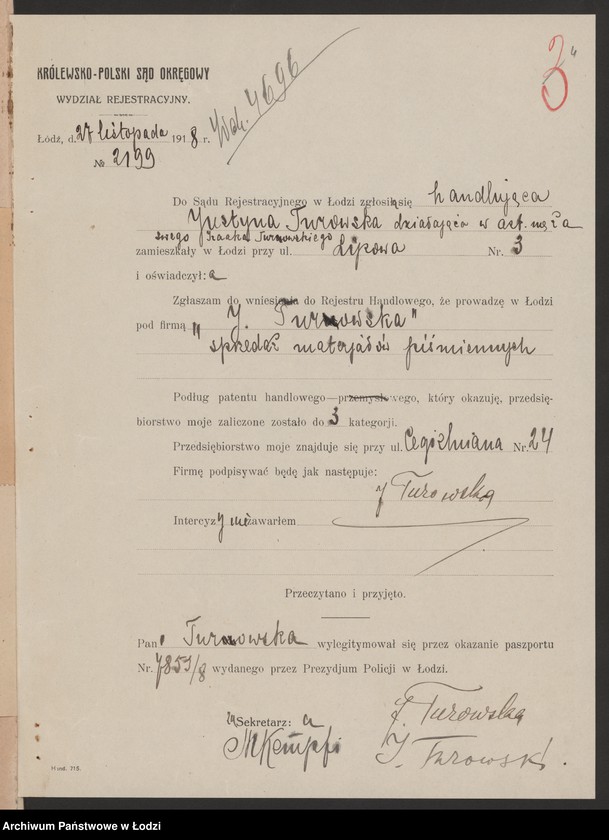 3
KRÓLEWSKO-POLSKI SĄD OKRĘGOWY
WYDZIAŁ REJESTRACYJNY.
Łódź, d. 27 listopada 1918 r.
№ 2199
4696
Do Sądu Rejestracyjnego w Łodzi zgłosiła się handlująca
Justyna Turowska działająca w ast. męża
swego Izaaka Turowskiego
zamieszkały w Łodzi przy ul. Lipowa Nr. 3
i oświadczył: a
Zgłaszam do wniesienia do Rejestru Handlowego, że prowadzę w Łodzi
pod firmą „J. Turowska"
"sprzedaż materjałów piśmiennych
Podług patentu handlowego—przemysłowego, który okazuję, przedsię-
biorstwo moje zaliczone zostało do 3 kategorji.
Przedsiębiorstwo moje znajduje się przy ul. Cegielniana Nr. 24
Firmę podpisywać będę jak następuje:
J Turowska
Intercyzy nie zawarłem
Przeczytano i przyjęto.
Pani Turowska wylegitymował się przez okazanie paszportu
Nr. 7851/8 wydanego przez Prezydjum Policji w Łodzi.
za Sekretarz: a
J. Turowska
MKempfi
J. Turowski.
Hand. 215.
Archiwum Państwowe w Łodzi